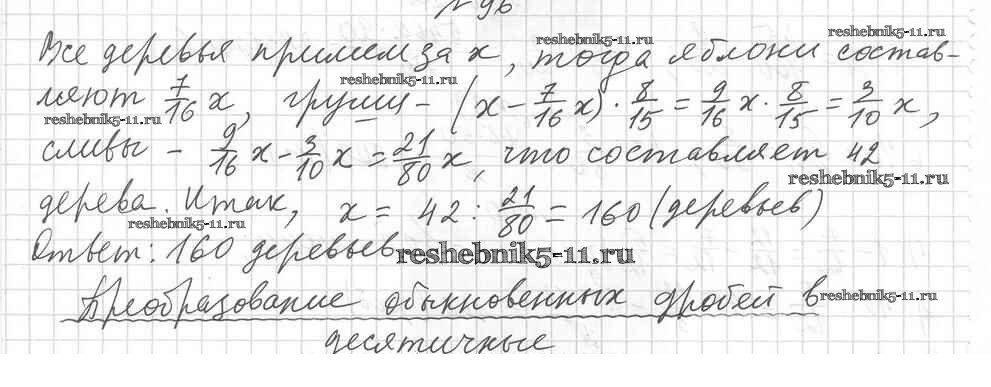 № 96
Все деревья примем за x, тогда яблони состав-
ляют 7/16 x, груши - (x - 7/16 x) · 8/15 = 9/16 x · 8/15 = 3/10 x,
сливы - 9/16 x - 3/10 x = 21/80 x, что составляет 42
дерева. Итак, x = 42 : 21/80 = 160 (деревьев)
Ответ: 160 деревьев
Преобразование обыкновенных дробей в
десятичные
reshebnik5-11.ru
reshebnik5-11.ru
reshebnik5-11.ru
reshebnik5-11.ru
reshebnik5-11.ru
reshebnik5-11.ru
reshebnik5-11.ru
reshebnik5-11.ru